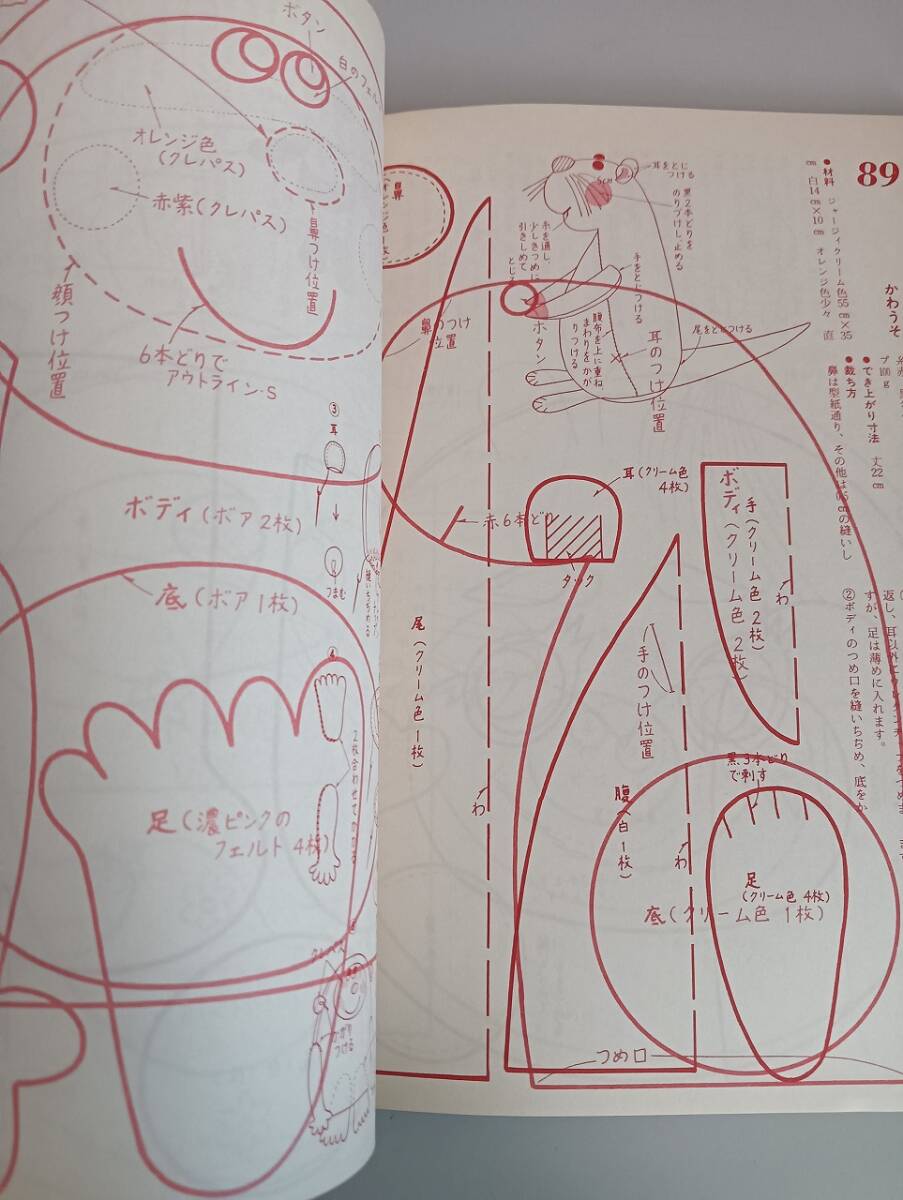 ボタン
白のフェル
オレンジ色
(クレパス)
赤紫(クレパス)
鼻つけ位置
顔つけ位置
6本どりで
アウトライン・S
③
耳
つまむ
ボディ(ボア2枚)
底(ボア1枚)
④
2枚合わせて
足(濃ピンクの
フェルト4枚)
クレパス
つける
89
かわうそ
●材料 ジャージィクリーム色55cm×35
cm 白14cm×10cm オレンジ色少々 直
プ100g
●でき上がり寸法 丈22cm
●裁ち方
鼻は型紙通り、その他は0.5cmの縫いし
すが、足は薄めに入れます。
②ボディのつめ口を縫いちぢめ、底をか
鼻
耳をとじ
つける
5cm
黒2本どりを
のりづけし、止める
糸を通し、
少しきつめに
引きしめて
手をとじつける
ボタン
腹布を上に重ね、
まわりをかが
りつける
尾をとじつける
鼻のつけ
位置
耳のつけ位置
耳(クリーム色
4枚)
タック
赤6本どり
ボディ(クリーム色 2枚)
手(クリーム色 2枚)
わ
尾(クリーム色 1枚)
わ
手のつけ位置
腹(白 1枚)
わ
黒3本どり
で刺す
足
(クリーム色 4枚)
底(クリーム色 1枚)
つめ口